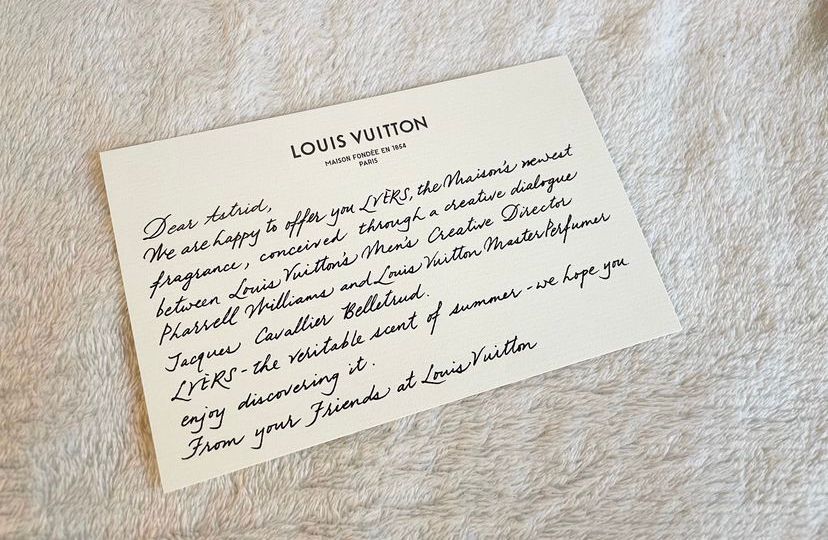 LOUIS VUITTON
MAISON FONDÉE EN 1854
PARIS
Dear Astrid,
We are happy to offer you LVERS, the Maison's newest
fragrance, conceived through a creative dialogue
between Louis Vuitton's Men's Creative Director
Pharrell Williams and Louis Vuitton Master Perfumer
Jacques Cavallier Belletrud.
LVERS - the veritable scent of summer - we hope you
enjoy discovering it.
From your Friends at Louis Vuitton